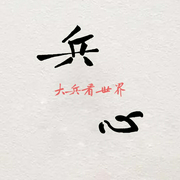 兵
大兵看世界
心